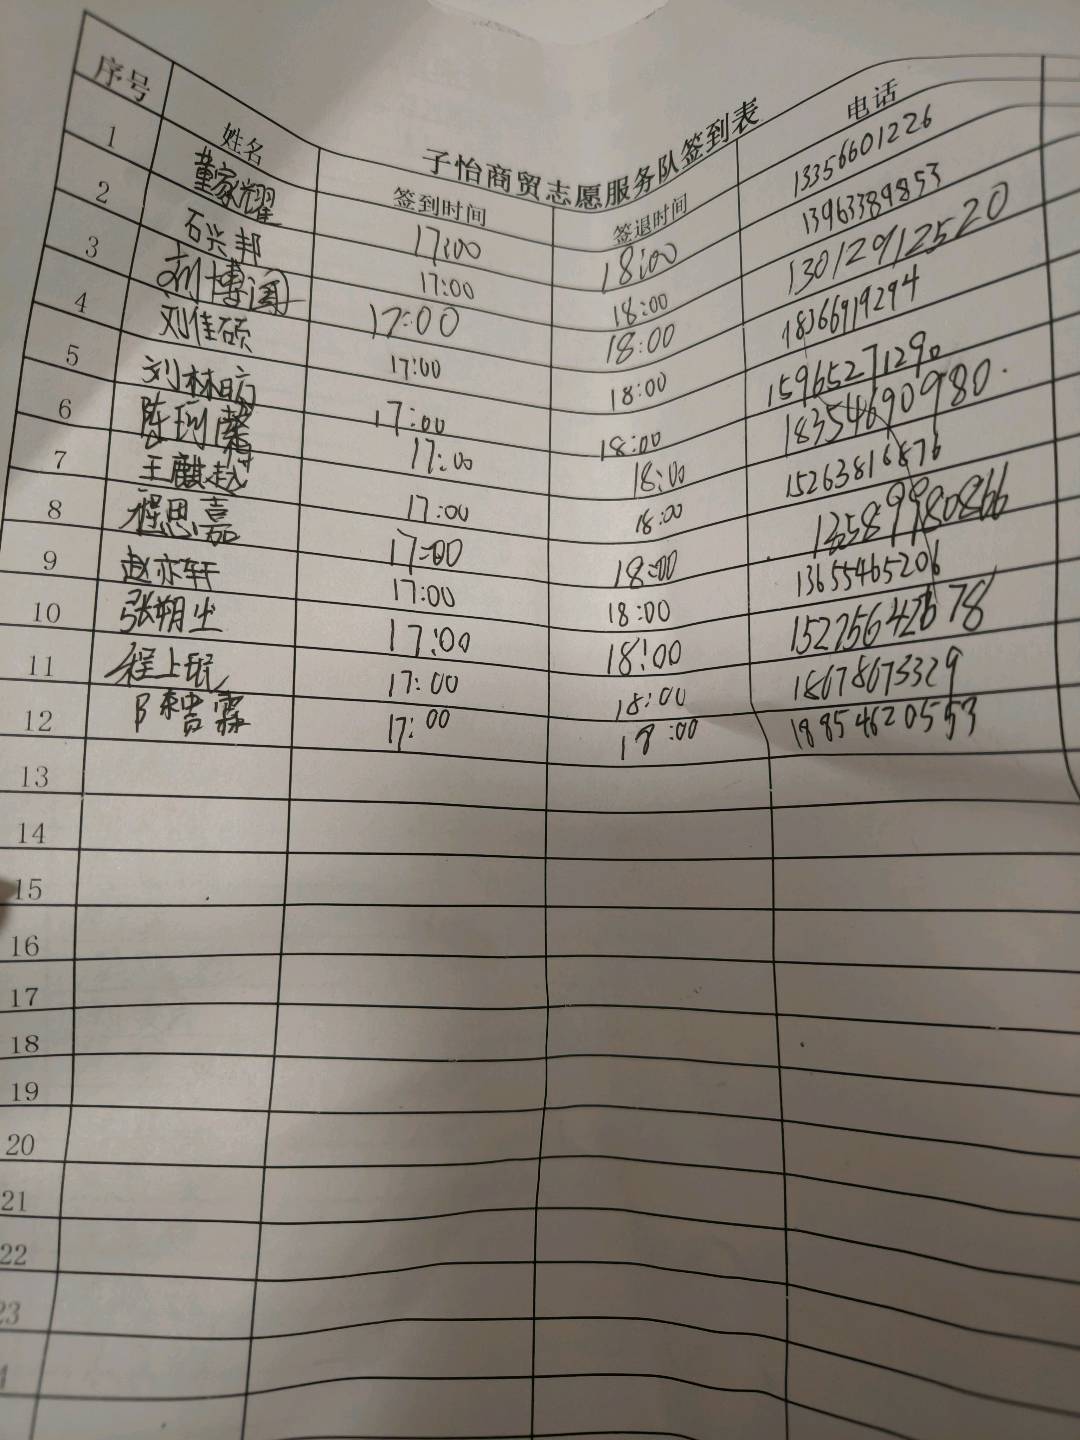 子怡商贸志愿服务队签到表
序号 姓名 签到时间 签退时间 电话
1 董家耀 17:00 18:00 13356601226
2 石兴邦 17:00 18:00 13963389853
3 刘博 17:00 18:00 13012912520
4 刘佳硕 17:00 18:00 18366919294
5 刘林昀 17:00 18:00 15965271290
6 陈珂馨 17:00 18:00 18354690980
7 王麒越 17:00 18:00 15263816876
8 程思嘉 17:00 18:00
9 赵亦轩 17:00 18:00 13655465206
10 张朔 17:00 18:00
11 程上珉 17:00 18:00 18678673329
12 17:00 18:00 18854620553
13
14
15
16
17
18
19
20
21
22
23